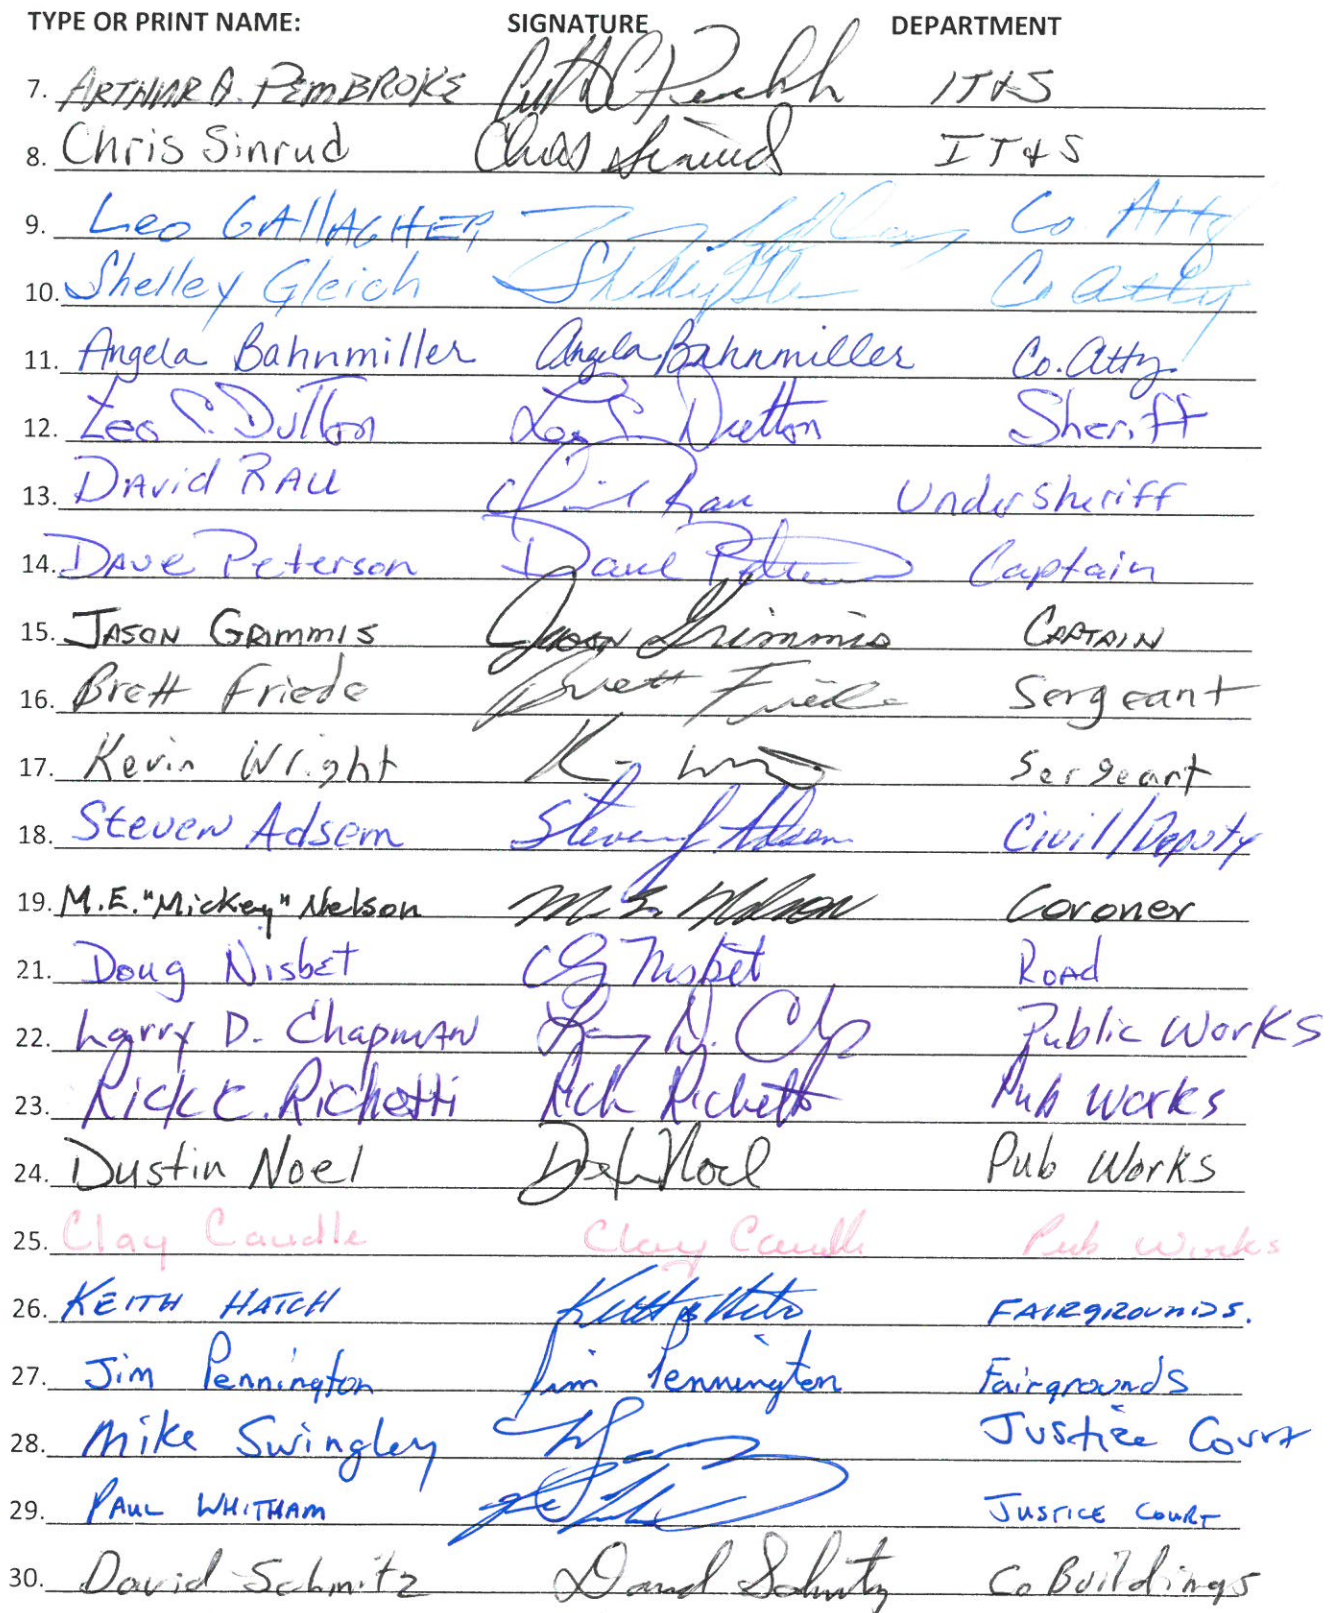 TYPE OR PRINT NAME: SIGNATURE DEPARTMENT
7. ARTHUR A. PEMBROKE IT&S
8. Chris Sinrud Chris Sinrud IT&S
9. Leo GAllAGHER Co. Atty
10. Shelley Gleich Shelley Co Atty
11. Angela Bahnmiller Angela Bahnmiller Co. Atty.
12. Leo C. Dutton Leo C. Dutton Sheriff
13. David RAU David Rau UnderSheriff
14. DAVE Peterson Dave Peterson Captain
15. JASON GRIMMIS Jason Grimmis CAPTAIN
16. Brett Friede Brett Friede Sergeant
17. Kevin Wright Sergeant
18. Steven Adsem Steven J Adsem Civil/Deputy
19. M.E. "Mickey" Nelson M. E. Nelson Coroner
21. Doug Nisbet Nisbet ROAD
22. Larry D. Chapman Larry D. Public Works
23. Rick C. Richetti Rick Richetti Pub Works
24. Dustin Noel Noel Pub Works
25. Clay Caudle Clay Caudle Pub Works
26. KEITH HATCH FAIRGROUNDS.
27. Jim Pennington Jim Pennington Fairgrounds
28. Mike Swingley Justice Court
29. PAUL WHITHAM JUSTICE COURT
30. David Schmitz David Schmitz Co Buildings